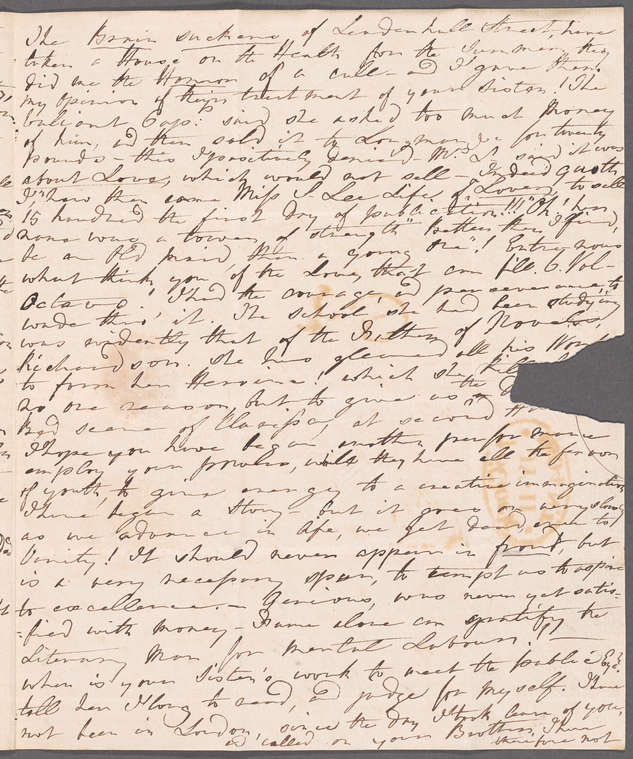 The Brain suckers of Leadenhall Street, have
taken a House on the Heath for the Summer, they
did me the Honour of a call - and I gave them
my opinion of their treatment of your Sister! The
Gaps: said she asked too much Money
of him, and then sold it to Longman &c for twenty
pounds - this I positively denied Mr. L said it was
about Love, which would not sell - Indeed quoth
I! how then came Miss S. Lee Life of a Lover, to sell
15 hundred the first day of publication!!!
name was a tower of strength" better then I find,
be an Old maid, than a young one"! Entre nous
what think you of the Love, that can fill 6 Vol -
Octavo! I had the courage and perseverance, to
wade thro' it. The school she had been studying
was evidently that of the Father of Novels,
Richardson. She has gleaned all his
to form her Heroine! which she
no one reason, but to give us the
Bed scene of Clarissa, at second
I hope you have began another performance
employ your powers, whilst they have all the fervour
of youth, to give energy to a creative immagination
I have began a Story - but it goes on very slowly
as we advance in life, we get dead even to
Vanity! It should never appear in front but
is a very necessary spur, to tempt us to aspire
to excellence. - Genious, was never yet satis=
=fied with money - Fame alone can gratify the
Literary Man for mental Labours! -
when is your Sister's work to meet the public Eye?
tell her I long to read, and judge for myself. I have
not been in London, since the day I took leave of you,
and called on your Brother, I have
therefore not